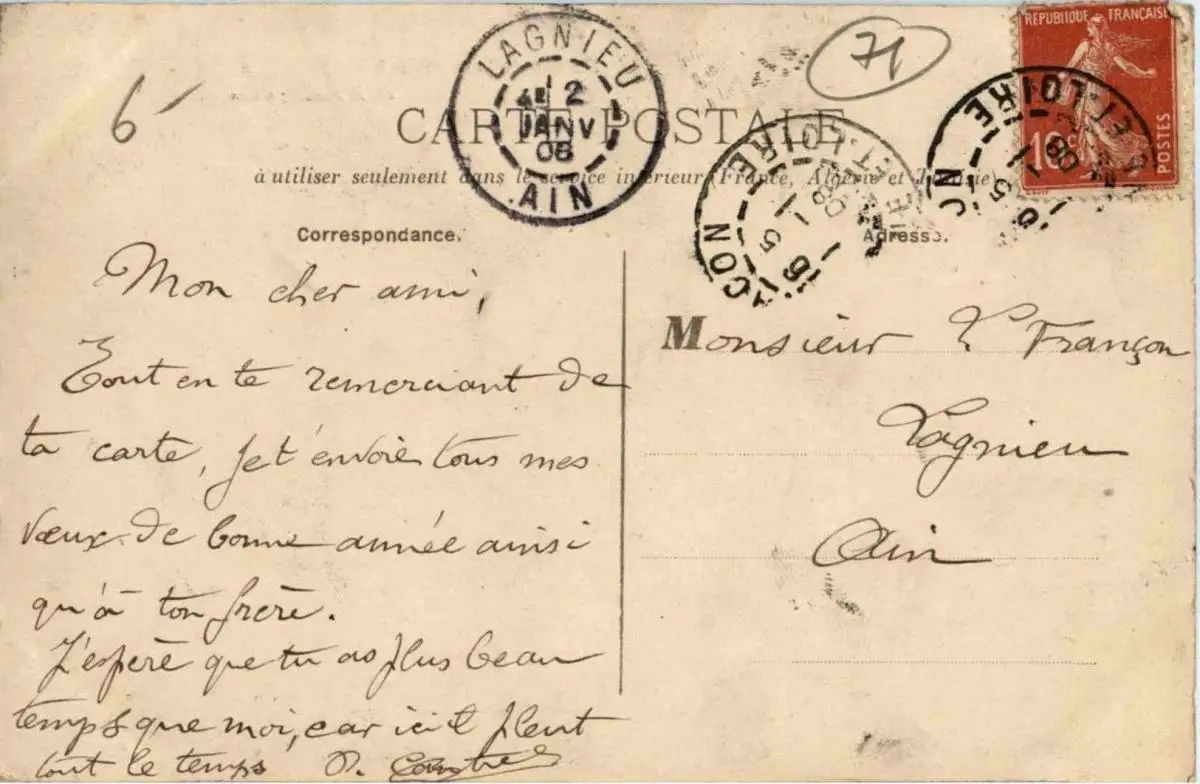 6
71
LAGNIEU
12
JANV
08
AIN
REPUBLIQUE FRANÇAISE
10c
POSTES
CARTE POSTALE
à utiliser seulement dans le service intérieur (France, Algérie et Tunisie)
ET-LOIRE
ET-LOIRE
Correspondance.
Adresse.
Mon cher ami,
Tout en te remerciant de
ta carte, je t'envoie tous mes
vœux de bonne année ainsi
qu'à ton frère.
J'espère que tu as plus beau
temps que moi, car ici il pleut
tout le temps
Monsieur Françon
Lagnieu
Ain